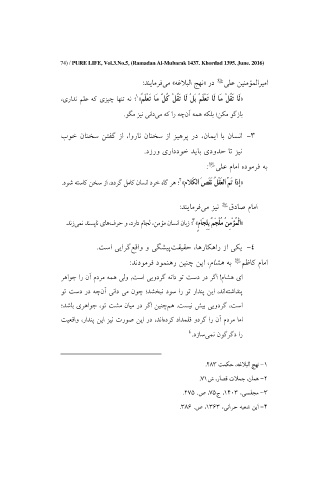 74) / PURE LIFE, Vol.3.No.5, (Ramadan Al-Mubarak 1437. Khordad 1395. June. 2016)
امیرالمؤمنین علی در «نهج البلاغه» می‌فرمایند:
«لَا تَقُلْ مَا لَا تَعْلَمُ بَلْ لَا تَقُلْ كُلَّ مَا تَعْلَمُ»¹؛ نه تنها چیزی که علم نداری،
بازگو مکن؛ بلکه همه آن‌چه را که می‌دانی نیز مگو.
۳- انسان با ایمان، در پرهیز از سخنان ناروا، از گفتن سخنان خوب
نیز تا حدودی باید خودداری ورزد.
به فرموده امام علی:
«إِذَا تَمَّ الْعَقْلُ نَقَصَ الْكَلَامُ»²؛ هر گاه خرد انسان کامل گردد، از سخن کاسته شود.
امام صادق نیز می‌فرمایند:
«الْمُؤْمِنُ مُلْجَمٌ بِلِجَامٍ»³؛ زبان انسان مؤمن، لجام دارد، و حرف‌های ناپسند نمی‌زند.
۴- یکی از راهکارها، حقیقت‌پیشگی و واقع‌گرایی است.
امام کاظم به هشام، این چنین رهنمود فرمودند:
ای هشام! اگر در دست تو دانه گردویی است، ولی همه مردم آن را جواهر
پنداشته‌اند، این پندار تو را سود نبخشد؛ چون می دانی آن‌چه در دست تو
است، گردویی بیش نیست. هم‌چنین اگر در میان مشت تو، جواهری باشد؛
اما مردم آن را گردو قلمداد کرده‌اند، در این صورت نیز این پندار، واقعیت
را دگرگون نمی‌سازد.⁴
۱- نهج البلاغه، حکمت ۳۸۲.
۲- همان، جملات قصار، ش ۷۱.
۳- مجلسی، ۱۴۰۳، ج۷۵، ص. ۲۷۵.
۴- ابن شعبه حرانی، ۱۳۶۳، ص. ۳۸۶.